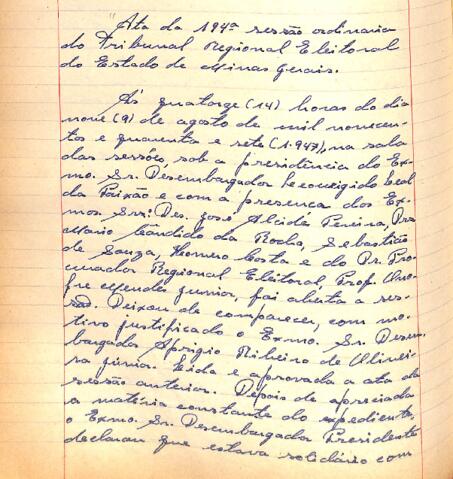 "Ata da 194ª sessão ordinaria
do Tribunal Regional Eleitoral
do Estado de Minas Gerais.
Ás quatorze (14) horas do dia
nove (9) de agosto de mil novecen-
tos e quarenta e sete (1.947), na sala
das sessões, sob a presidência do Ex-
mo. Sr. Desembargador Leal
da Paixão e com a presença dos Ex-
mos. Srs. Des. José Alcides Pereira, Drs.
Mario Cândido da Rocha, Sebastião
de Souza, Homero Costa e do Dr. Pro-
curador Regional Eleitoral, Prof. Ono-
fre Mendes Junior, foi aberta a ses-
são. Deixou de comparecer, com mo-
tivo justificado o Exmo. Sr. Desem-
bargador Aprigio Ribeiro de Olivei-
ra Júnior. Lida e aprovada a ata da
sessão anterior. Depois de apreciada
a matéria constante do expediente,
o Exmo. Sr. Desembargador Presidente
declarou que estava solidário com